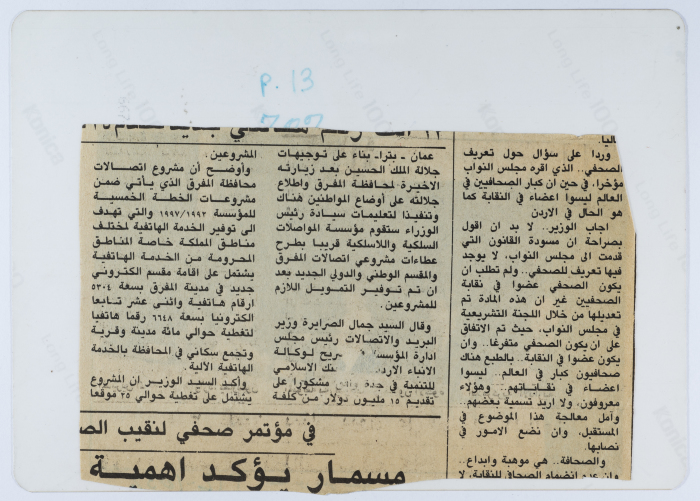 p. 13
707
Konica
Long Life 100
١٢ الف رقم هاتفي جديد
المشروعين.
وأوضح أن مشروع اتصالات
محافظة المفرق الذي يأتي ضمن
مشروعات الخطة الخمسية
للمؤسسة ١٩٩٧/١٩٩٣ والتي تهدف
الى توفير الخدمة الهاتفية لمختلف
مناطق المملكة خاصة المناطق
المحرومة من الخدمة الهاتفية
يشتمل على اقامة مقسم الكتروني
جديد في مدينة المفرق بسعة ٥٣٠٤
ارقام هاتفية واثنى عشر تابعا
الكترونيا بسعة ٦٦٤٨ رقما هاتفيا
لتغطية حوالي مائة مدينة وقرية
وتجمع سكاني في المحافظة بالخدمة
الهاتفية الآلية.
وأكد السيد الوزير ان المشروع
يشتمل على تغطية حوالي ٢٥ موقعا
عمان ـ بترا ـ بناء على توجيهات
جلالة الملك الحسين بعد زيارته
الاخيرة لمحافظة المفرق واطلاع
جلالته على أوضاع المواطنين هناك
وتنفيذا لتعليمات سيادة رئيس
الوزراء ستقوم مؤسسة المواصلات
السلكية واللاسلكية قريبا بطرح
عطاءات مشروعي اتصالات المفرق
والمقسم الوطني والدولي الجديد بعد
ان تم توفير التمويل اللازم
للمشروعين.
وقال السيد جمال الصرايرة وزير
البريد والاتصالات رئيس مجلس
ادارة المؤسسة صريح لوكالة
الانباء الاردن بنك الاسلامي
للتنمية في جدة وافق مشكورا على
تقديم ١٥ مليون دولار من كلفة
في مؤتمر صحفي لنقيب الص
مسمار يؤكد اهمية
ـاليا.
وردا على سؤال حول تعريف
الصحفي.. الذي اقره مجلس النواب
مؤخرا، في حين ان كبار الصحافيين في
العالم ليسوا اعضاء في النقابة كما
هو الحال في الاردن
اجاب الوزير.. لا بد ان اقول
بصراحة ان مسودة القانون التي
قدمت الى مجلس النواب، لا يوجد
فيها تعريف للصحفي.. ولم تطلب ان
يكون الصحفي عضوا في نقابة
الصحفيين غير ان هذه المادة تم
تعديلها من خلال اللجنة التشريعية
في مجلس النواب، حيث تم الاتفاق
على ان يكون الصحفي متفرغا.. وان
يكون عضوا في النقابة.. بالطبع هناك
صحافيون كبار في العالم .. ليسوا
اعضاء في نقاباتهم.. وهؤلاء
معروفون، ولا اريد تسمية بعضهم..
وآمل معالجة هذا الموضوع في
المستقبل، وان نضع الامور في
نصابها.
والصحافة.. هي موهبة وابداع..
وان عدم انضمام الصحافي للنقابة، لا